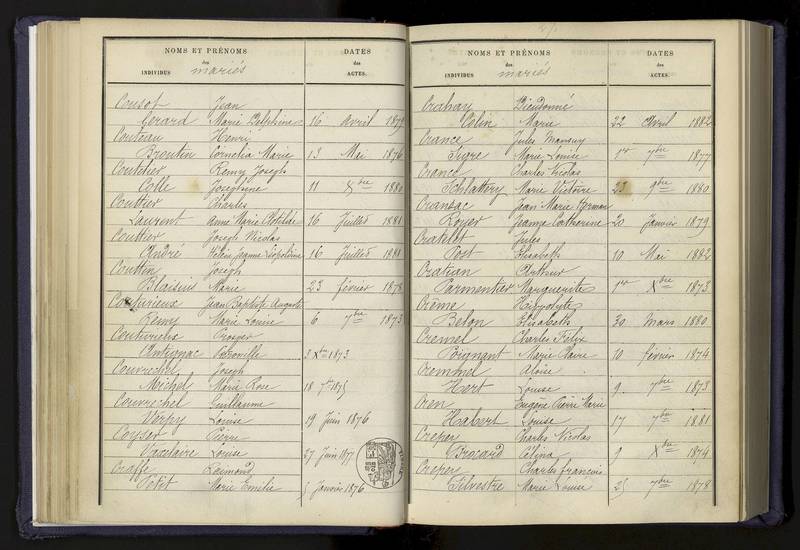 NOMS ET PRÉNOMS DATES
des des
INDIVIDUS mariés ACTES.
Cousot Jean
Gérard Marie Delphine 16 Avril 1879
Couteau Henri
Broutin Cornelia Marie 13 Mai 1876
Coutelier Remy Joseph
Colle Joséphine 11 Xbre 1880
Couttier Charles
Laurent Anne Marie Clotilde 16 Juillet 1881
Couttier Joseph Nicolas
André Jeanne Léopoldine 16 Juillet 1881
Couttin Joseph
Blaisius Marie 23 février 1878
Couturieux Jean Baptiste Auguste
Remy Marie Louise 6 7bre 1873
Couturieux Prosper
Antignac Petronille 3 Xbre 1873
Couvrechel Joseph
Michel Marie Rose 18 7bre 1875
Couvrechel Guillaume
Verhy Louise 19 Juin 1876
Coyser Pierre
Vacelaire Louise 27 Juin 1877
Craffe Raimond
Petit Marie Emilie 5 Janvier 1876
NOMS ET PRÉNOMS DATES
des des
INDIVIDUS mariés ACTES.
Crahay Dieudonné
Colin Marie 22 Avril 1882
Crance Jules Mansuy
Marie Louise 1er 7bre 1877
Crance Charles Nicolas
Schlattery Marie Victoire 23 9bre 1880
Cransac Jean Marie
Royer Jeanne Catherine 20 Janvier 1879
Cratelet Jules
Post Elisabeth 10 Mai 1882
Cratian Arthur
Parmentier Marguerite 1er Xbre 1873
Crème Hippolyte
Beton Elisabeth 30 Mars 1880
Cremel Charles Félix
Poignant Marie Claire 10 février 1874
Cremmel Aloïse
Hert Louise 9 7bre 1873
Cren Eugène Pierre Marie
Habert Louise 17 7bre 1881
Creper Charles Nicolas
Brocard Célina 9 Xbre 1874
Creper Charles François
Silvestre Marie Louise 25 7bre 1878